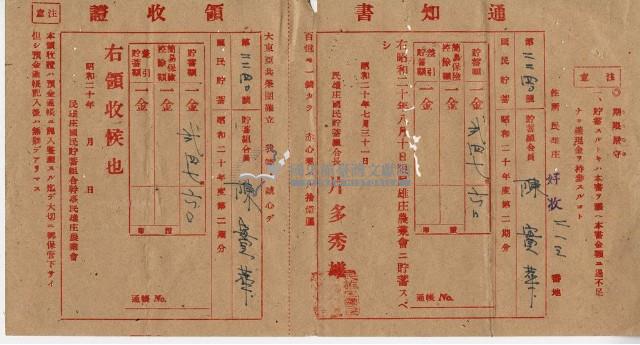 通知書
注意
◎期限嚴守
一、貯蓄スルトキハ本書ヲ願ヘ本書金額ニ過不足
ナキ樣現金ヲ持參スルコト
住所 民雄庄 好收 二一三 番地
第 號 貯蓄組合員 陳
國民貯蓄 昭和二十年度第二期分
貯蓄額 一金
簡易保險控除額 一金
差引貯蓄額 一金
通帳No.
右昭和二十年八月十日迄民雄庄農業會ニ貯蓄スベシ
昭和二十年七月三十一日
民雄庄國民貯蓄組合長 多秀雄
百億モ一錢カラ 赤心
大東亞共榮圈確立 我 誠心デ
領收證
注意
第 號 貯蓄組合員 陳
國民貯蓄 昭和二十年度第二期分
貯蓄額 一金
簡易保險控除額 一金
差引貯蓄額 一金
通帳No.
右領收候也
昭和二十年 月 日
民雄庄國民貯蓄組合幹事民雄庄農業會
本領收證ハ預金通帳ニ記入 スル迄デ大切ニ御保管下サイ
但シ預金通帳記入後ハ無効デアリマス